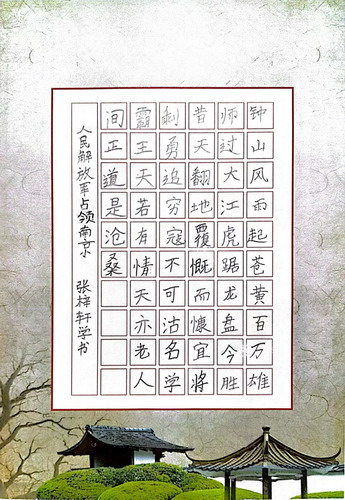 钟山风雨起苍黄百万雄
师过大江虎踞龙盘今胜
昔天翻地覆慨而慷宜将
剩勇追穷寇不可沽名学
霸王天若有情天亦老人
间正道是沧桑
人民解放军占领南京 张梓轩学书